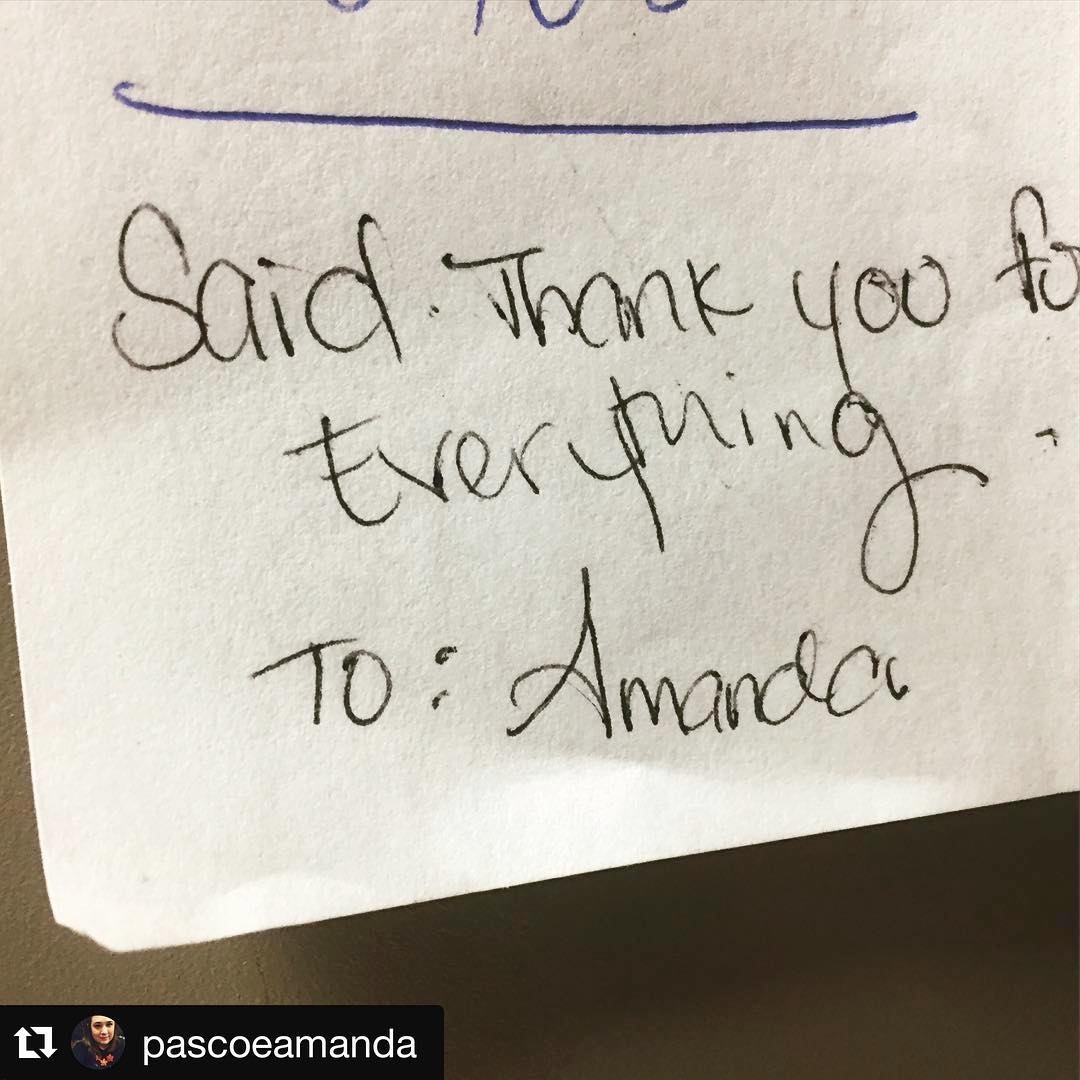 Said. Thank you fo
Everything.
To: Amanda
pascoeamanda